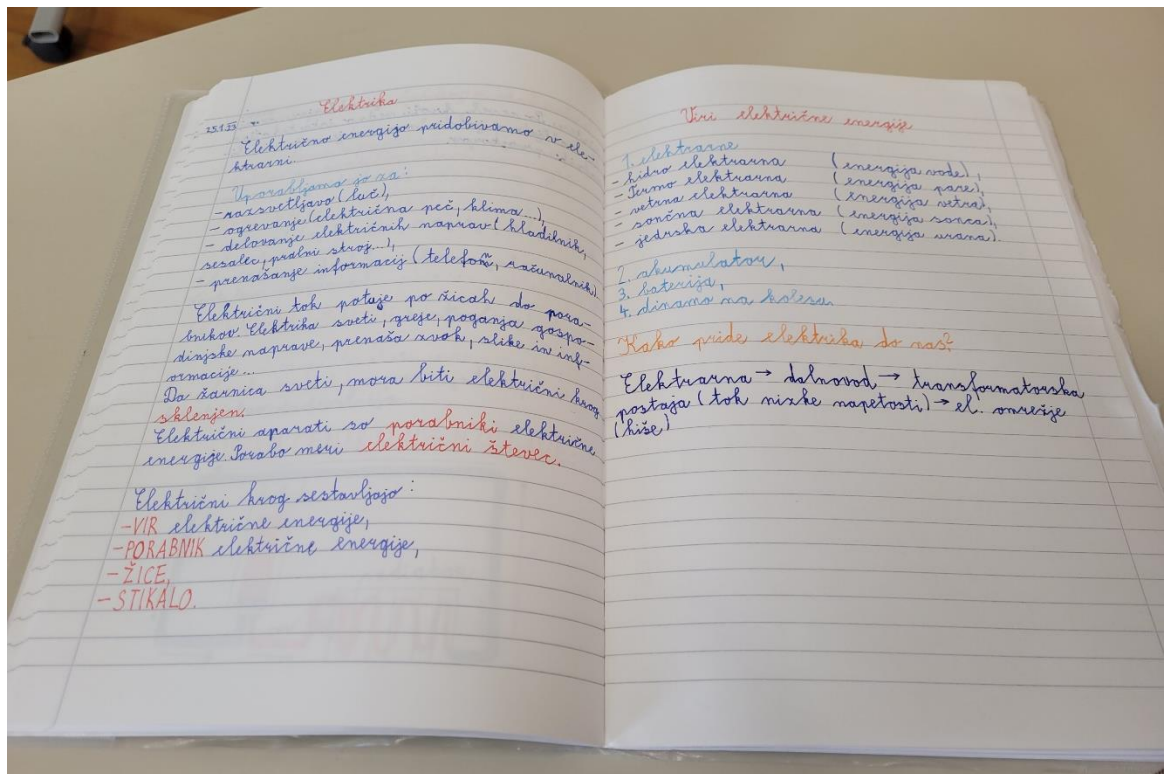 Elektrika
Električno energijo pridobivamo v ele-
ktrarni.
Uporabljamo jo za:
- razsvetljavo (luč),
- ogrevanje (električna peč, klima...),
- delovanje električnih naprav (hladilnik,
sesalec, pralni stroj...),
- prenašanje informacij (telefon, računalnik).
Električni tok potuje po žicah do pora-
bnikov. Elektrika sveti, greje, poganja gospo-
dinjske naprave, prenaša zvok, slike in inf-
ormacije...
Da žarnica sveti, mora biti električni krog
sklenjen.
Električni aparati so porabniki električne
energije. Porabo meri električni števec.
Električni krog sestavljajo:
-VIR električne energije,
-PORABNIK električne energije,
-ŽICE,
-STIKALO.
Viri električne energije
1. elektrarne
- hidro elektrarna (energija vode),
- termo elektrarna (energija pare),
- vetrna elektrarna (energija vetra),
- sončna elektrarna (energija sonca),
- jedrska elektrarna (energija urana).
2. akumulator,
3. baterija,
4. dinamo na kolesu.
Kako pride elektrika do nas?
Elektrarna → dalnovod → transformatorska
postaja (tok nizke napetosti) → el. omrežje
(hiše)